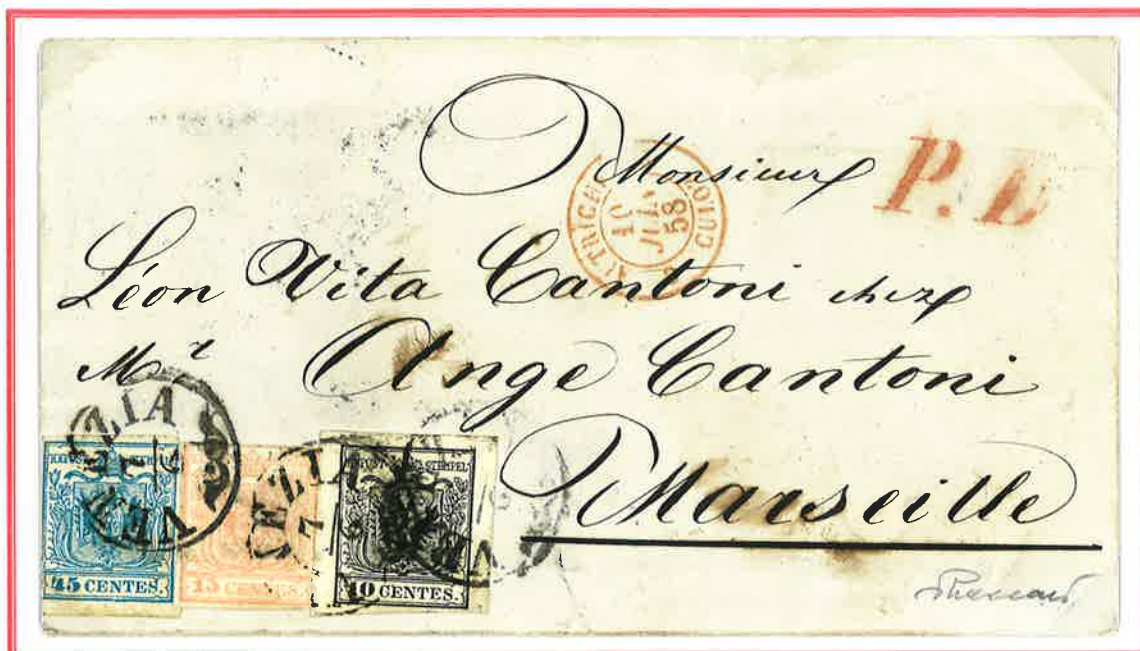 Monsieur
P.D
AUTRICHE
10
JUIL
58
CULOZ
Léon Vita Cantoni chez
Mr Ange Cantoni
Marseille
VENEZIA
VENEZIA
45 CENTES.
15 CENTES.
10 CENTES.
STEMPEL